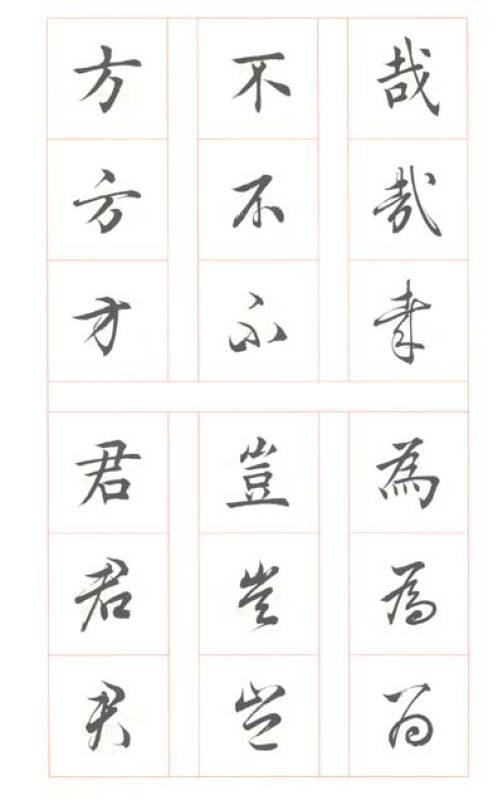 哉哉哉
不不不
方方方
為為為
豈豈豈
君君君